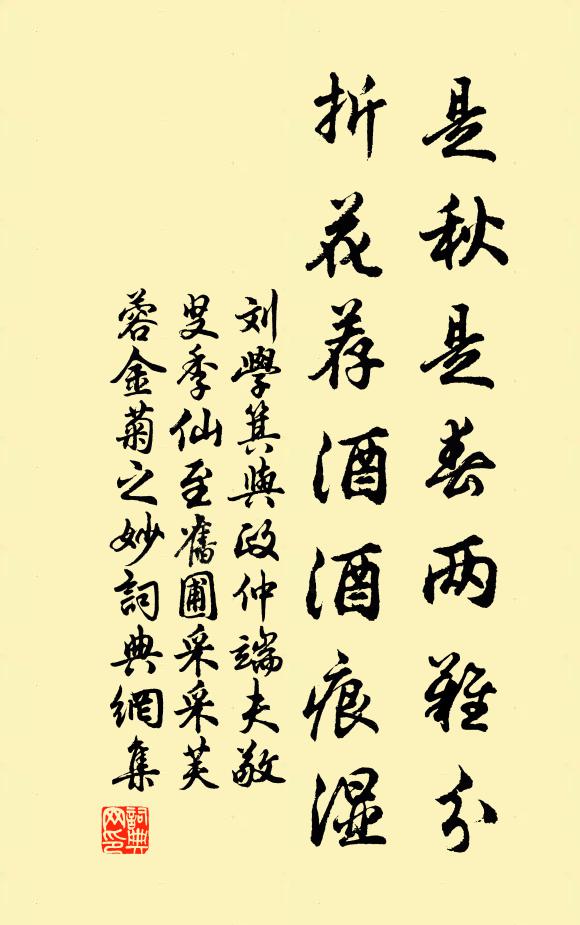 是秋是春两難分
折花荐酒酒痕湿
刘學箕與政仲端夫敬
叟季仙至舊圃采采芙
蓉金菊之妙詞典網集
詞典
网印